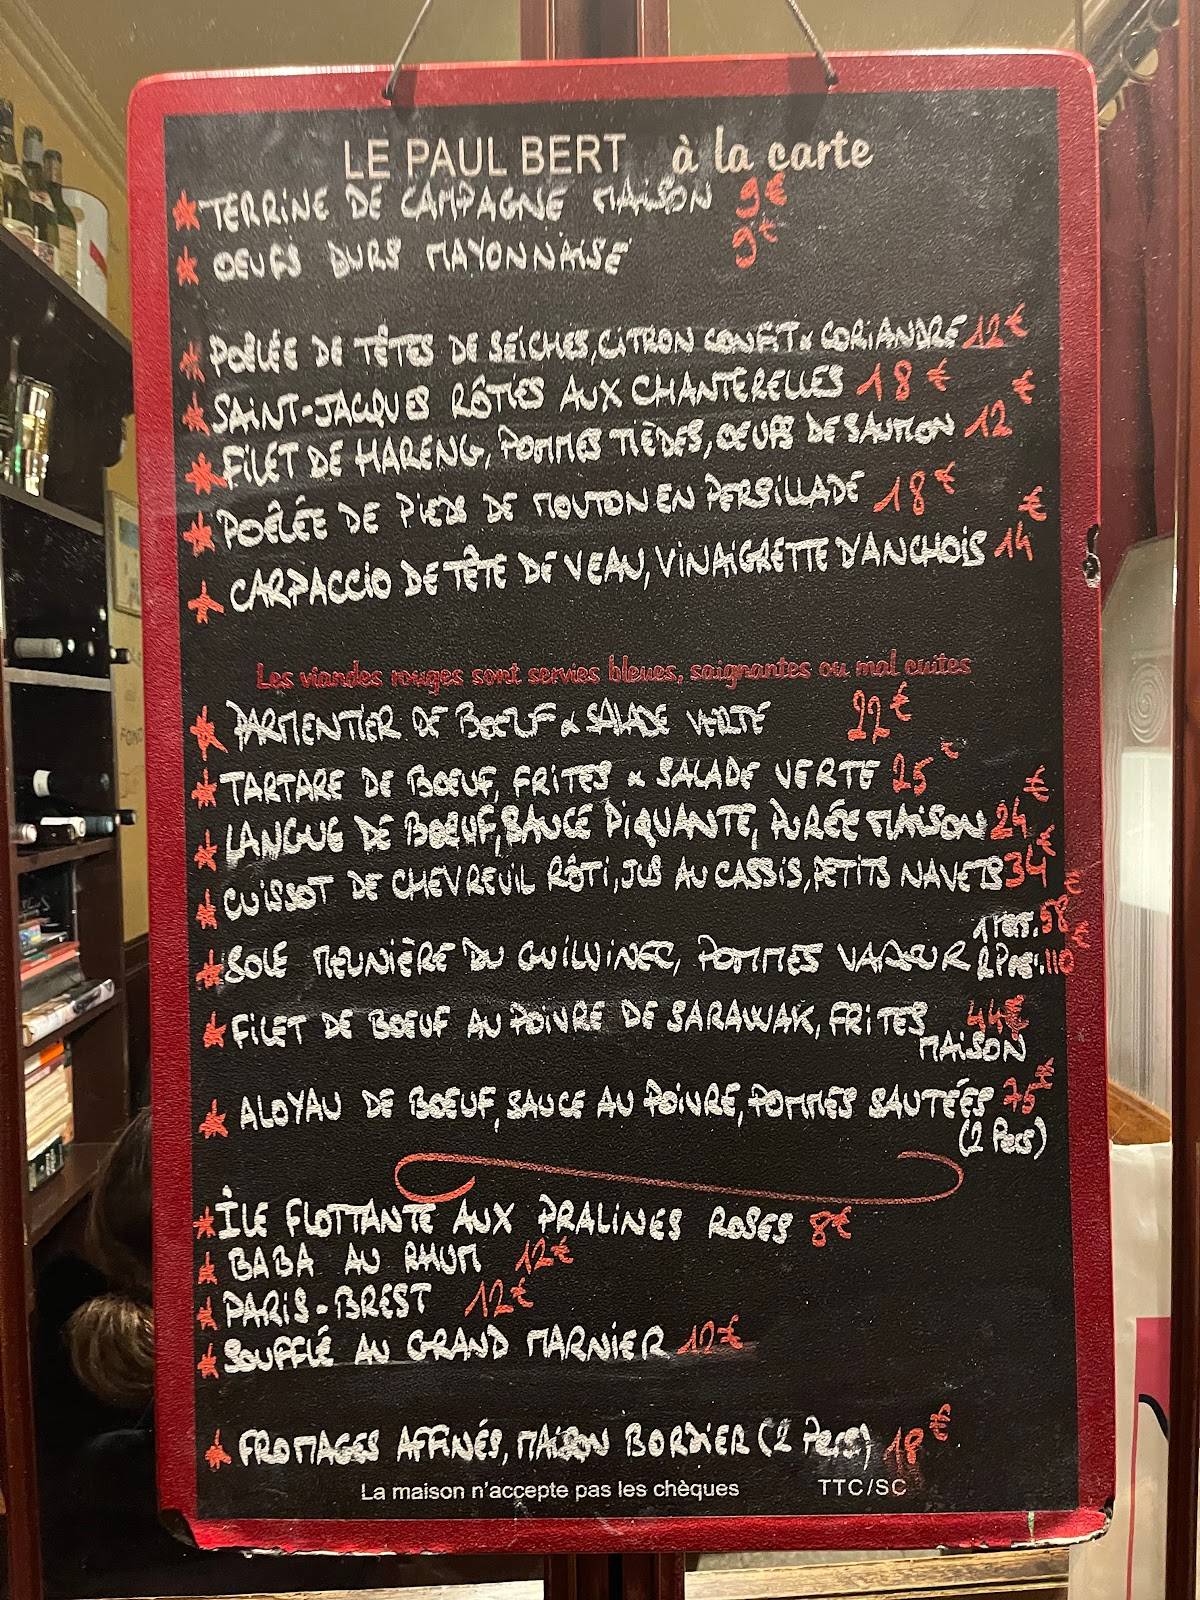 LE PAUL BERT à la carte
* TERRINE DE CAMPAGNE MAISON 9€
* OEUFS DURS MAYONNAISE 9€
* POÊLÉE DE TÊTES DE SEICHES, CITRON CONFIT & CORIANDRE 12€
* SAINT-JACQUES RÔTIES AUX CHANTERELLES 18€
* FILET DE HARENG, POMMES TIÈDES, OEUFS DE SAUMON 12€
* POÊLÉE DE PIEDS DE MOUTON EN PERSILLADE 18€
* CARPACCIO DE TÊTE DE VEAU, VINAIGRETTE D'ANCHOIS 14€
Les viandes rouges sont servies bleues, saignantes ou mal cuites
* PARMENTIER DE BOEUF & SALADE VERTE 22€
* TARTARE DE BOEUF, FRITES & SALADE VERTE 25€
* LANGUE DE BOEUF, SAUCE PIQUANTE, PURÉE MAISON 24€
* CUISSOT DE CHEVREUIL RÔTI, JUS AU CASSIS, PETITS NAVETS 34€
1 PERS. 58€
* SOLE MEUNIÈRE DU GUILVINEC, POMMES VAPEUR 2 Pers. 110€
* FILET DE BOEUF AU POIVRE DE SARAWAK, FRITES 44€
MAISON
* ALOYAU DE BOEUF, SAUCE AU POIVRE, POMMES SAUTÉES 75€
(2 Pers)
* ÎLE FLOTTANTE AUX PRALINES ROSES 8€
* BABA AU RHUM 12€
* PARIS-BREST 12€
* SOUFFLÉ AU GRAND MARNIER 12€
* FROMAGES AFFINÉS, MAISON BORDIER (2 Pers) 18€
La maison n'accepte pas les chèques TTC/SC